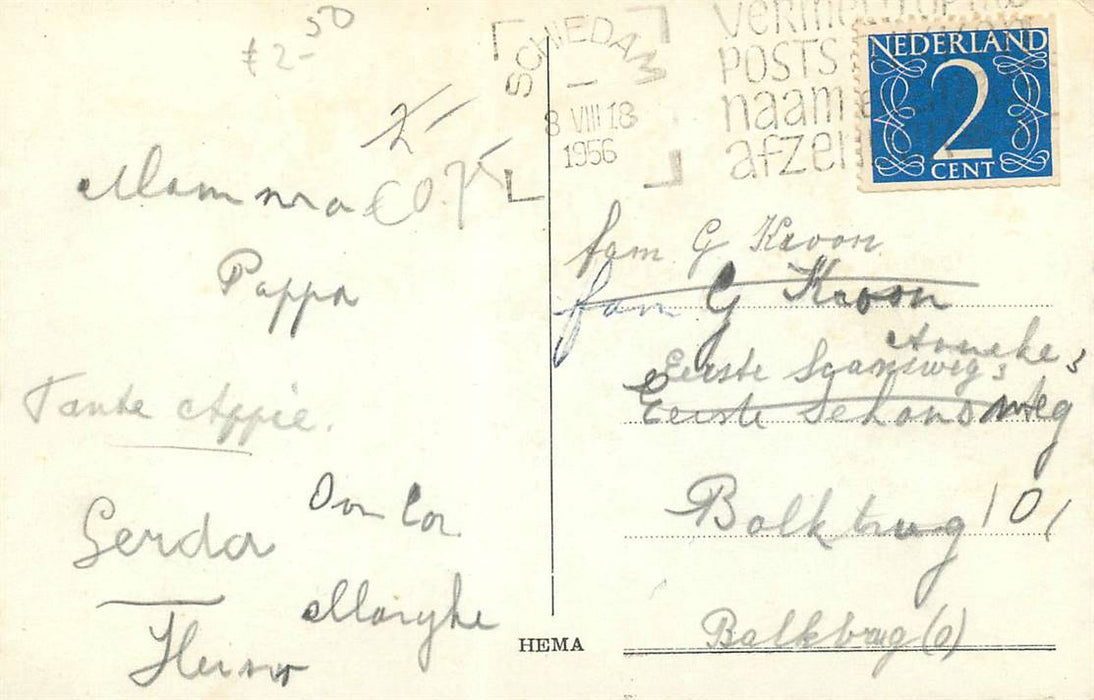 f 2-50
2-
€0.75
Mamma
Pappa
Tante Appie.
Oom Cor
Gerda
Marijke
SCHIEDAM
8 VIII 18
1956
POSTS
naam
afzen
NEDERLAND
2
CENT
fam G Kroon
fam G Kroon
Anneke,
Eerste
Eerste Schansweg
Balkbrug (O)
Balkbrug (o)
HEMA